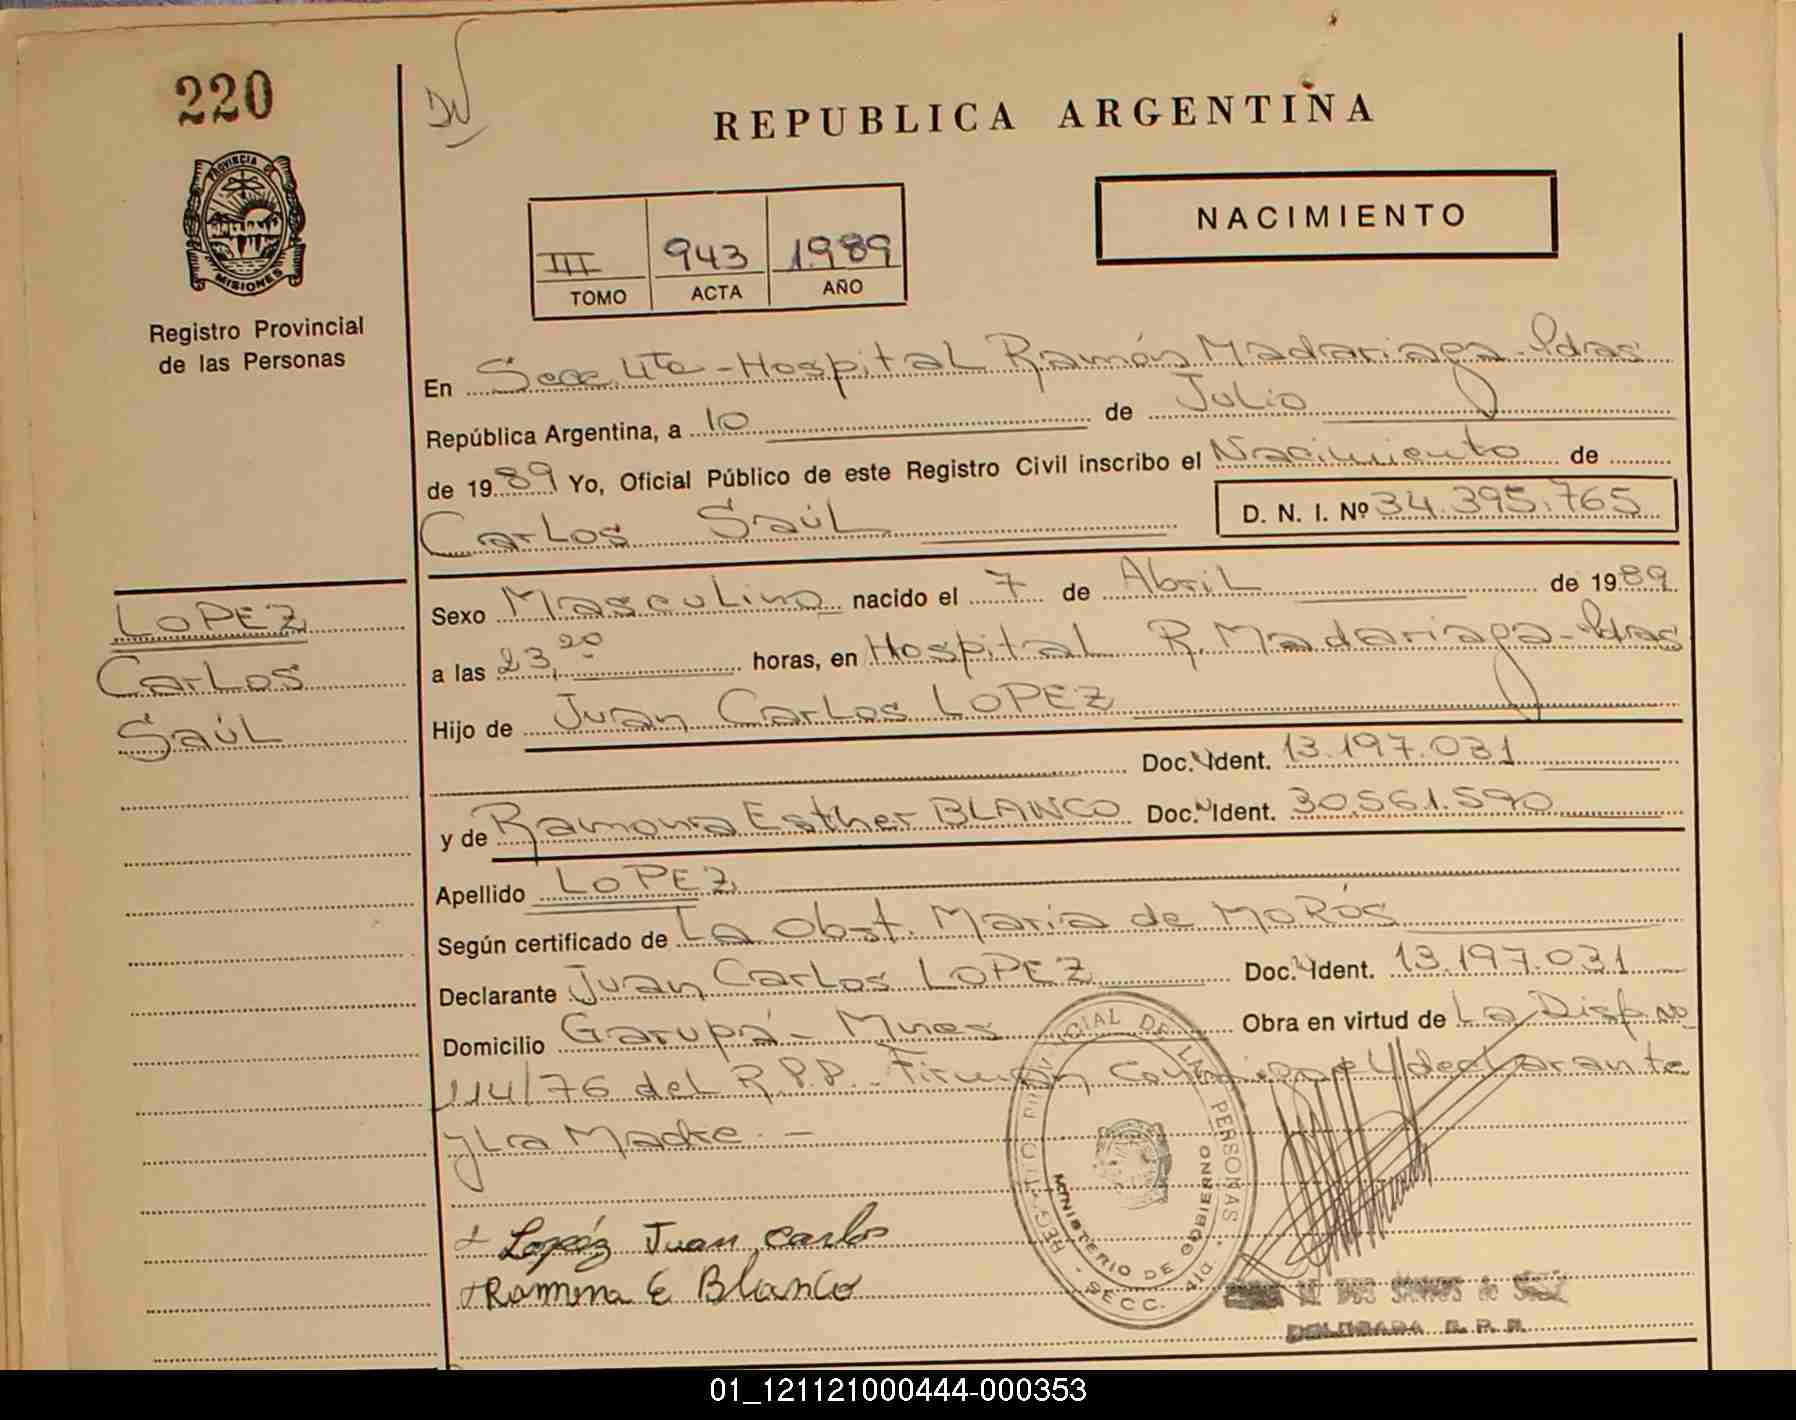 220
REPUBLICA ARGENTINA
PROVINCIA DE
MISIONES
Registro Provincial
de las Personas
NACIMIENTO
III 943 1989
TOMO ACTA AÑO
En Secc 4ta - Hospital Ramón Madariaga - Pdas
República Argentina, a 10 de Julio
de 1989 Yo, Oficial Público de este Registro Civil inscribo el Nacimiento de
Carlos Saúl D. N. I. Nº 34.395.765
LOPEZ
Carlos
Saúl
Sexo Masculino nacido el 7 de Abril de 1989
a las 23,20 horas, en Hospital R. Madariaga - Pdas
Hijo de Juan Carlos LOPEZ
Doc. Ident. 13.197.031
y de Ramona Esther BLANCO Doc. Ident. 30.561.590
Apellido LOPEZ
Según certificado de La Obst. María de MoRós
Declarante Juan Carlos LOPEZ Doc. Ident. 13.197.031
Domicilio Garupá - Mnes Obra en virtud de La Disp. Nº
114/76 del R.P.P. - Firman conmigo el declarante
y La Madre. -
Lopéz Juan Carlos
Ramona E Blanco
REGISTRO PROVINCIAL DE LAS PERSONAS
MINISTERIO DE GOBIERNO
SECC. 4ta
DE DOS SANTOS de
DELEGADA R. P. P.
01_121121000444-000353